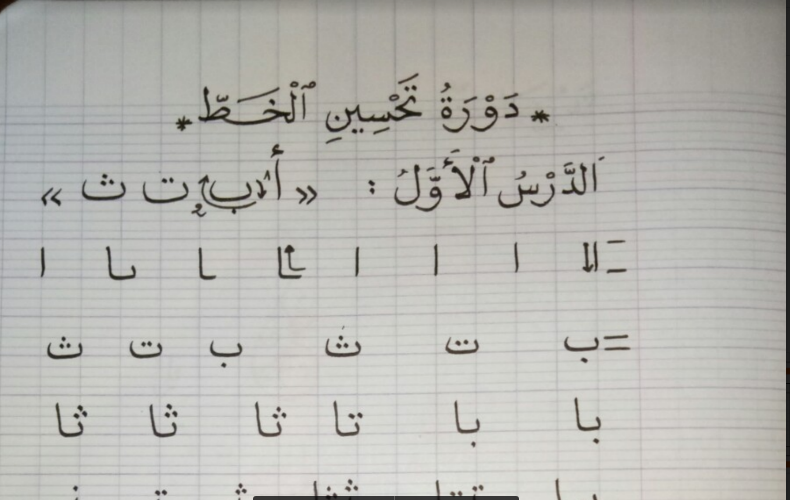 * دَوْرَةُ تَحْسِينِ ٱلْخَطّ *
الدَّرْسُ ٱلْأَوَّلُ : « أ ب ت ث »
ا ا ا ا ا
ب ت ث ب ت ث
با با تا ثا ثا ثا